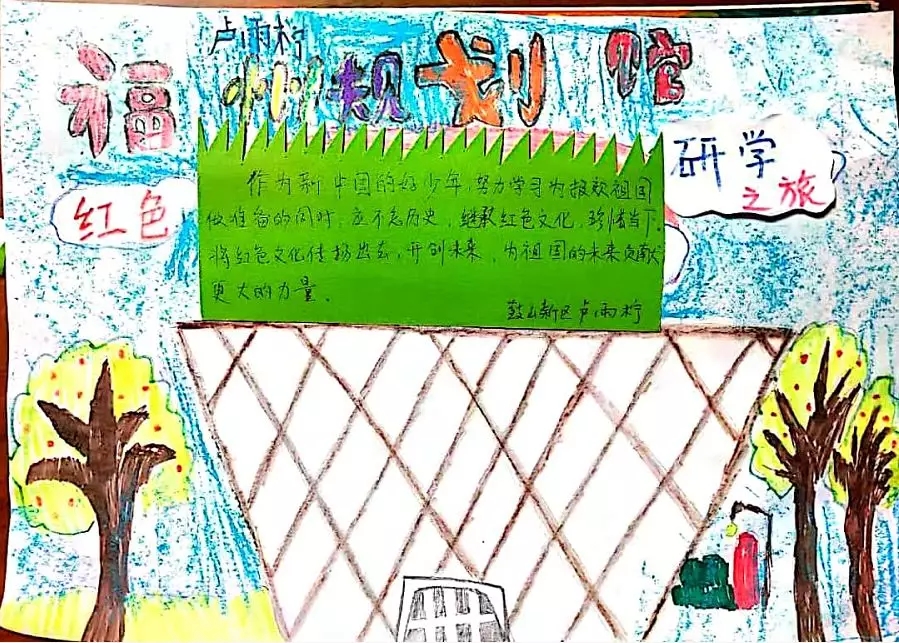 卢雨柠
福州规划馆
研学
之旅
红色
作为新中国的好少年,努力学习为报效祖国
做准备的同时,应不忘历史,继承红色文化,珍惜当下,
将红色文化传扬出去,开创未来,为祖国的未来贡献
更大的力量。
鼓山新区卢雨柠